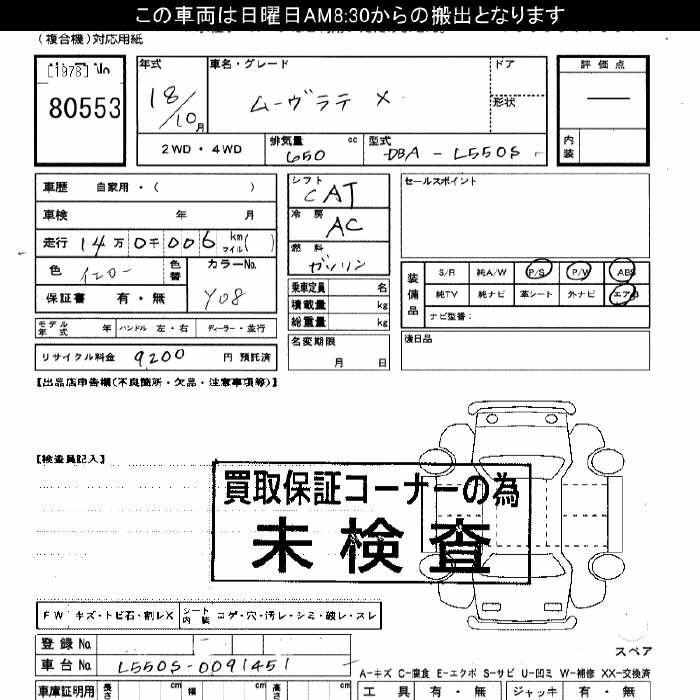 この車両は日曜日AM8:30からの搬出となります
(複合機)対応用紙
[1978] No
80553
年式 車名・グレード ドア 評価点
18/10月 ムーヴラテ X 形状 ―
2WD・4WD 排気量 650 cc 型式 DBA-L550S 内装
車歴 自家用・( )
車検 年 月
走行 14万0千006 km マイル( )
色 イエロー 色替 カラーNo. Y08
保証書 有・無
モデル年式 年 ハンドル 左・右 ディーラー・並行
リサイクル料金 9200 円 預託済
シフト CAT
冷房 AC
燃料 ガソリン
乗車定員 名
積載量 kg
総重量 kg
名変期限
月 日
セールスポイント
装備品 S/R 純A/W P/S P/W ABS
純TV 純ナビ 革シート 外ナビ エアB
ナビ型番:
後日品
【出品店申告欄(不良箇所・欠品・注意事項等)】
【検査員記入】
買取保証コーナーの為
未検査
FW キズ・トビ石・割レX シート内装 コゲ・穴・汚レ・シミ・破レ・スレ
登録No.
車台No. L550S-0091451
スペア
A-キズ C-腐食 E-エクボ S-サビ U-凹ミ W-補修 XX-交換済
車庫証明用 長さ cm 幅 cm 高さ cm 工具 有・無 ジャッキ 有・無